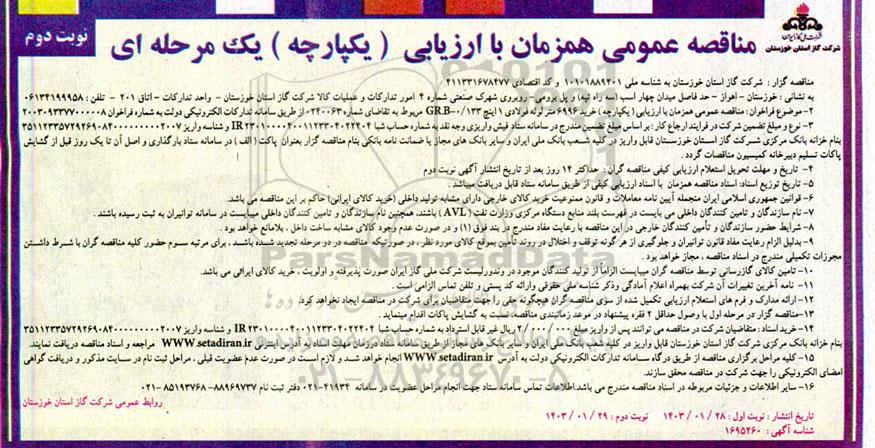 نوبت دوم
مناقصه عمومی همزمان با ارزیابی ( یکپارچه ) یک مرحله ای
شرکت گاز استان خوزستان
مناقصه گزار : شرکت گاز استان خوزستان به شناسه ملی ۱۰۱۰۱۸۸۹۲۰۱ و کد اقتصادی ۴۱۱۳۳۱۶۷۸۴۷۷
به نشانی : خوزستان - اهواز - حد فاصل میدان چهار اسب (سه راه تپه) و پل بروحی- روبروی شهرک صنعتی شماره ۴ امور تدارکات و عملیات کالا شرکت گاز استان خوزستان - واحد تدارکات - اتاق ۲۰۱ - تلفن : ۰۶۱۳۴۱۹۹۹۵۸
۲- موضوع فراخوان : مناقصه عمومی همزمان با ارزیابی ( یکپارچه ) خرید ۶۹۹۶ متر لوله فولادی ۱ اینچ GR.B-۰/۱۳۳ مربوط به تقاضای شماره ۲۴۰۰۶۳- از طریق سامانه تدارکات الکترونیکی دولت به شماره فراخوان ۲۰۰۳۰۹۳۳۷۷۰۰۰۰۰۸
۳- نوع و مبلغ تضمین شرکت در فرایند ارجاع کار : بر اساس مبلغ تضمین مندرج در سامانه ستاد فیش واریزی وجه نقد به شماره حساب شبا IR ۲۳۰۱۰۰۰۰۴۰۰۱۱۲۳۳۰۴۰۲۲۴۰۴ و شناسه واریز ۳۵۱۱۲۳۳۵۷۲۹۲۶۹۸۴۰۰۰۰۰۰۰۰۰۰۲۰۰۷
بنام خزانه بانک مرکزی شرکت گاز استان خوزستان قابل واریز در کلیه شعب بانک ملی ایران و سایر بانک های مجاز یا ضمانت نامه بانکی بنام مناقصه گزار بعنوان پاکت ( الف ) در سامانه ستاد بارگذاری و اصل آن تا یک روز قبل از گشایش
پاکات تسلیم دبیرخانه کمیسیون مناقصات گردد .
۴- تاریخ و مهلت تحویل استعلام ارزیابی کیفی مناقصه گران : حداکثر ۱۴ روز بعد از تاریخ انتشار آگهی نوبت دوم
۵- تاریخ توزیع اسناد: اسناد مناقصه همزمان با اسناد ارزیابی کیفی از طریق سامانه ستاد قابل دریافت میباشد .
۶- قوانین جمهوری اسلامی ایران منجمله آیین نامه معاملات و قانون ممنوعیت خرید کالای خارجی دارای مشابه تولید داخلی (خرید کالای ایرانی) حاکم بر این مناقصه می باشد.
۷- نام سازندگان و تامین کنندگان داخلی می بایست در فهرست بلند منابع دستگاه مرکزی وزارت نفت ( AVL ) باشند، همچنین نام سازندگان و تامین کنندگان داخلی میبایست در سامانه توانیران به ثبت رسیده باشند .
۸- شرایط حضور سازندگان و تأمین کنندگان خارجی در این مناقصه با رعایت مفاد مندرج در بند فوق (۱) و در صورت عدم وجود کالای مشابه ساخت داخل ، بلامانع خواهد بود .
۹- بدلیل الزام رعایت مفاد قانون توانیران و جلوگیری از هر گونه توقف و اختلال در روند تأمین بموقع کالای مورد نظر ، در صورتیکه مناقصه در دو مرحله تجدید شده باشد ، برای مرتبه سوم حضور کلیه مناقصه گران با شرط داشتن
مجوزات تکمیلی مندرج در اسناد مناقصه ، مجاز خواهد بود .
۱۰- تامین کالای گازرسانی توسط مناقصه گران میبایست الزاماً از تولید کنندگان موجود در وندورلیست شرکت ملی گاز ایران صورت پذیرفته و اولویت ، خرید کالای ایرانی می باشد.
۱۱- نامه آخرین تغییرات آن شرکت بهمراه اعلام آمادگی وذکر شناسه ملی حقوقی وارائه کد پستی و تلفن تماس الزامی است .
۱۲- ارائه مدارک و فرم های استعلام ارزیابی تکمیل شده از سوی مناقصه گران هیچگونه حقی را جهت متقاضیان برای شرکت در مناقصه ایجاد نخواهد کرد.
۱۳-مناقصه گزار در مرحله اول با وصول حداقل ۲ فقره پیشنهاد در موعد زمانبندی مناقصه، نسبت به گشایش پاکات اقدام مینماید .
۱۴- خرید اسناد : متقاضیان شرکت در مناقصه می توانند پس از واریز مبلغ ۲/۰۰۰/۰۰۰ ریال غیر قابل استرداد به شماره حساب شبا IR ۲۳۰۱۰۰۰۰۴۰۰۱۱۲۳۳۰۴۰۲۲۴۰۴ و شناسه واریز ۳۵۱۱۲۳۳۵۷۲۹۲۶۹۸۴۰۰۰۰۰۰۰۰۰۰۲۰۰۷
بنام خزانه بانک مرکزی شرکت گاز استان خوزستان قابل واریز در کلیه شعب بانک ملی ایران و سایر بانک های مجاز از طریق سامانه ستاد درزمان مهلت اسناد به آدرس اینترنتی WWW.setadiran.ir مراجعه و اسناد مناقصه دریافت نمایند.
۱۵- کلیه مراحل برگزاری مناقصه از طریق درگاه سامانه تدارکات الکترونیکی دولت به آدرس WWW.setadiran.ir انجام خواهد شد و لازم است در صورت عدم عضویت قبلی ، مراحل ثبت نام در سایت مذکور و دریافت گواهی
امضای الکترونیکی را جهت شرکت در مناقصه محقق سازند.
۱۶- سایر اطلاعات و جزئیات مربوطه در اسناد مناقصه مندرج می باشد اطلاعات تماس سامانه ستاد جهت انجام مراحل عضویت در سامانه ۴۱۹۳۴-۰۲۱ دفتر ثبت نام ۸۸۹۶۹۷۳۷- ۸۵۱۹۳۷۶۸ -۰۲۱
روابط عمومی شرکت گاز استان خوزستان
تاریخ انتشار : نوبت اول : ۲۸ / ۰۱ / ۱۴۰۳ نوبت دوم : ۲۹ / ۰۱ / ۱۴۰۳
شناسه آگهی : ۱۶۹۵۲۶۰
ParsNamadData
۰۲۱-۸۸۳۴۹۶۷۰-۵